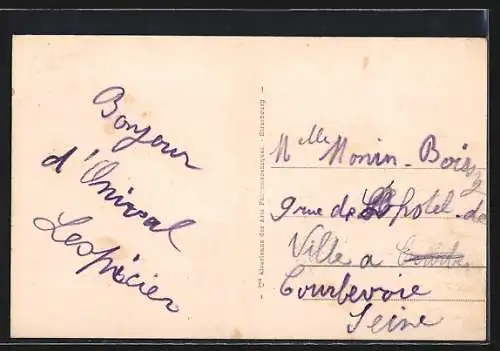 Bonjour
d'Onival
Lespicier
Cie Alsacienne des Arts Photomécaniques - Strasbourg
Mlle Monin-Boiez
9 rue de l'hotel-de
Ville a
Courbevoie
Seine